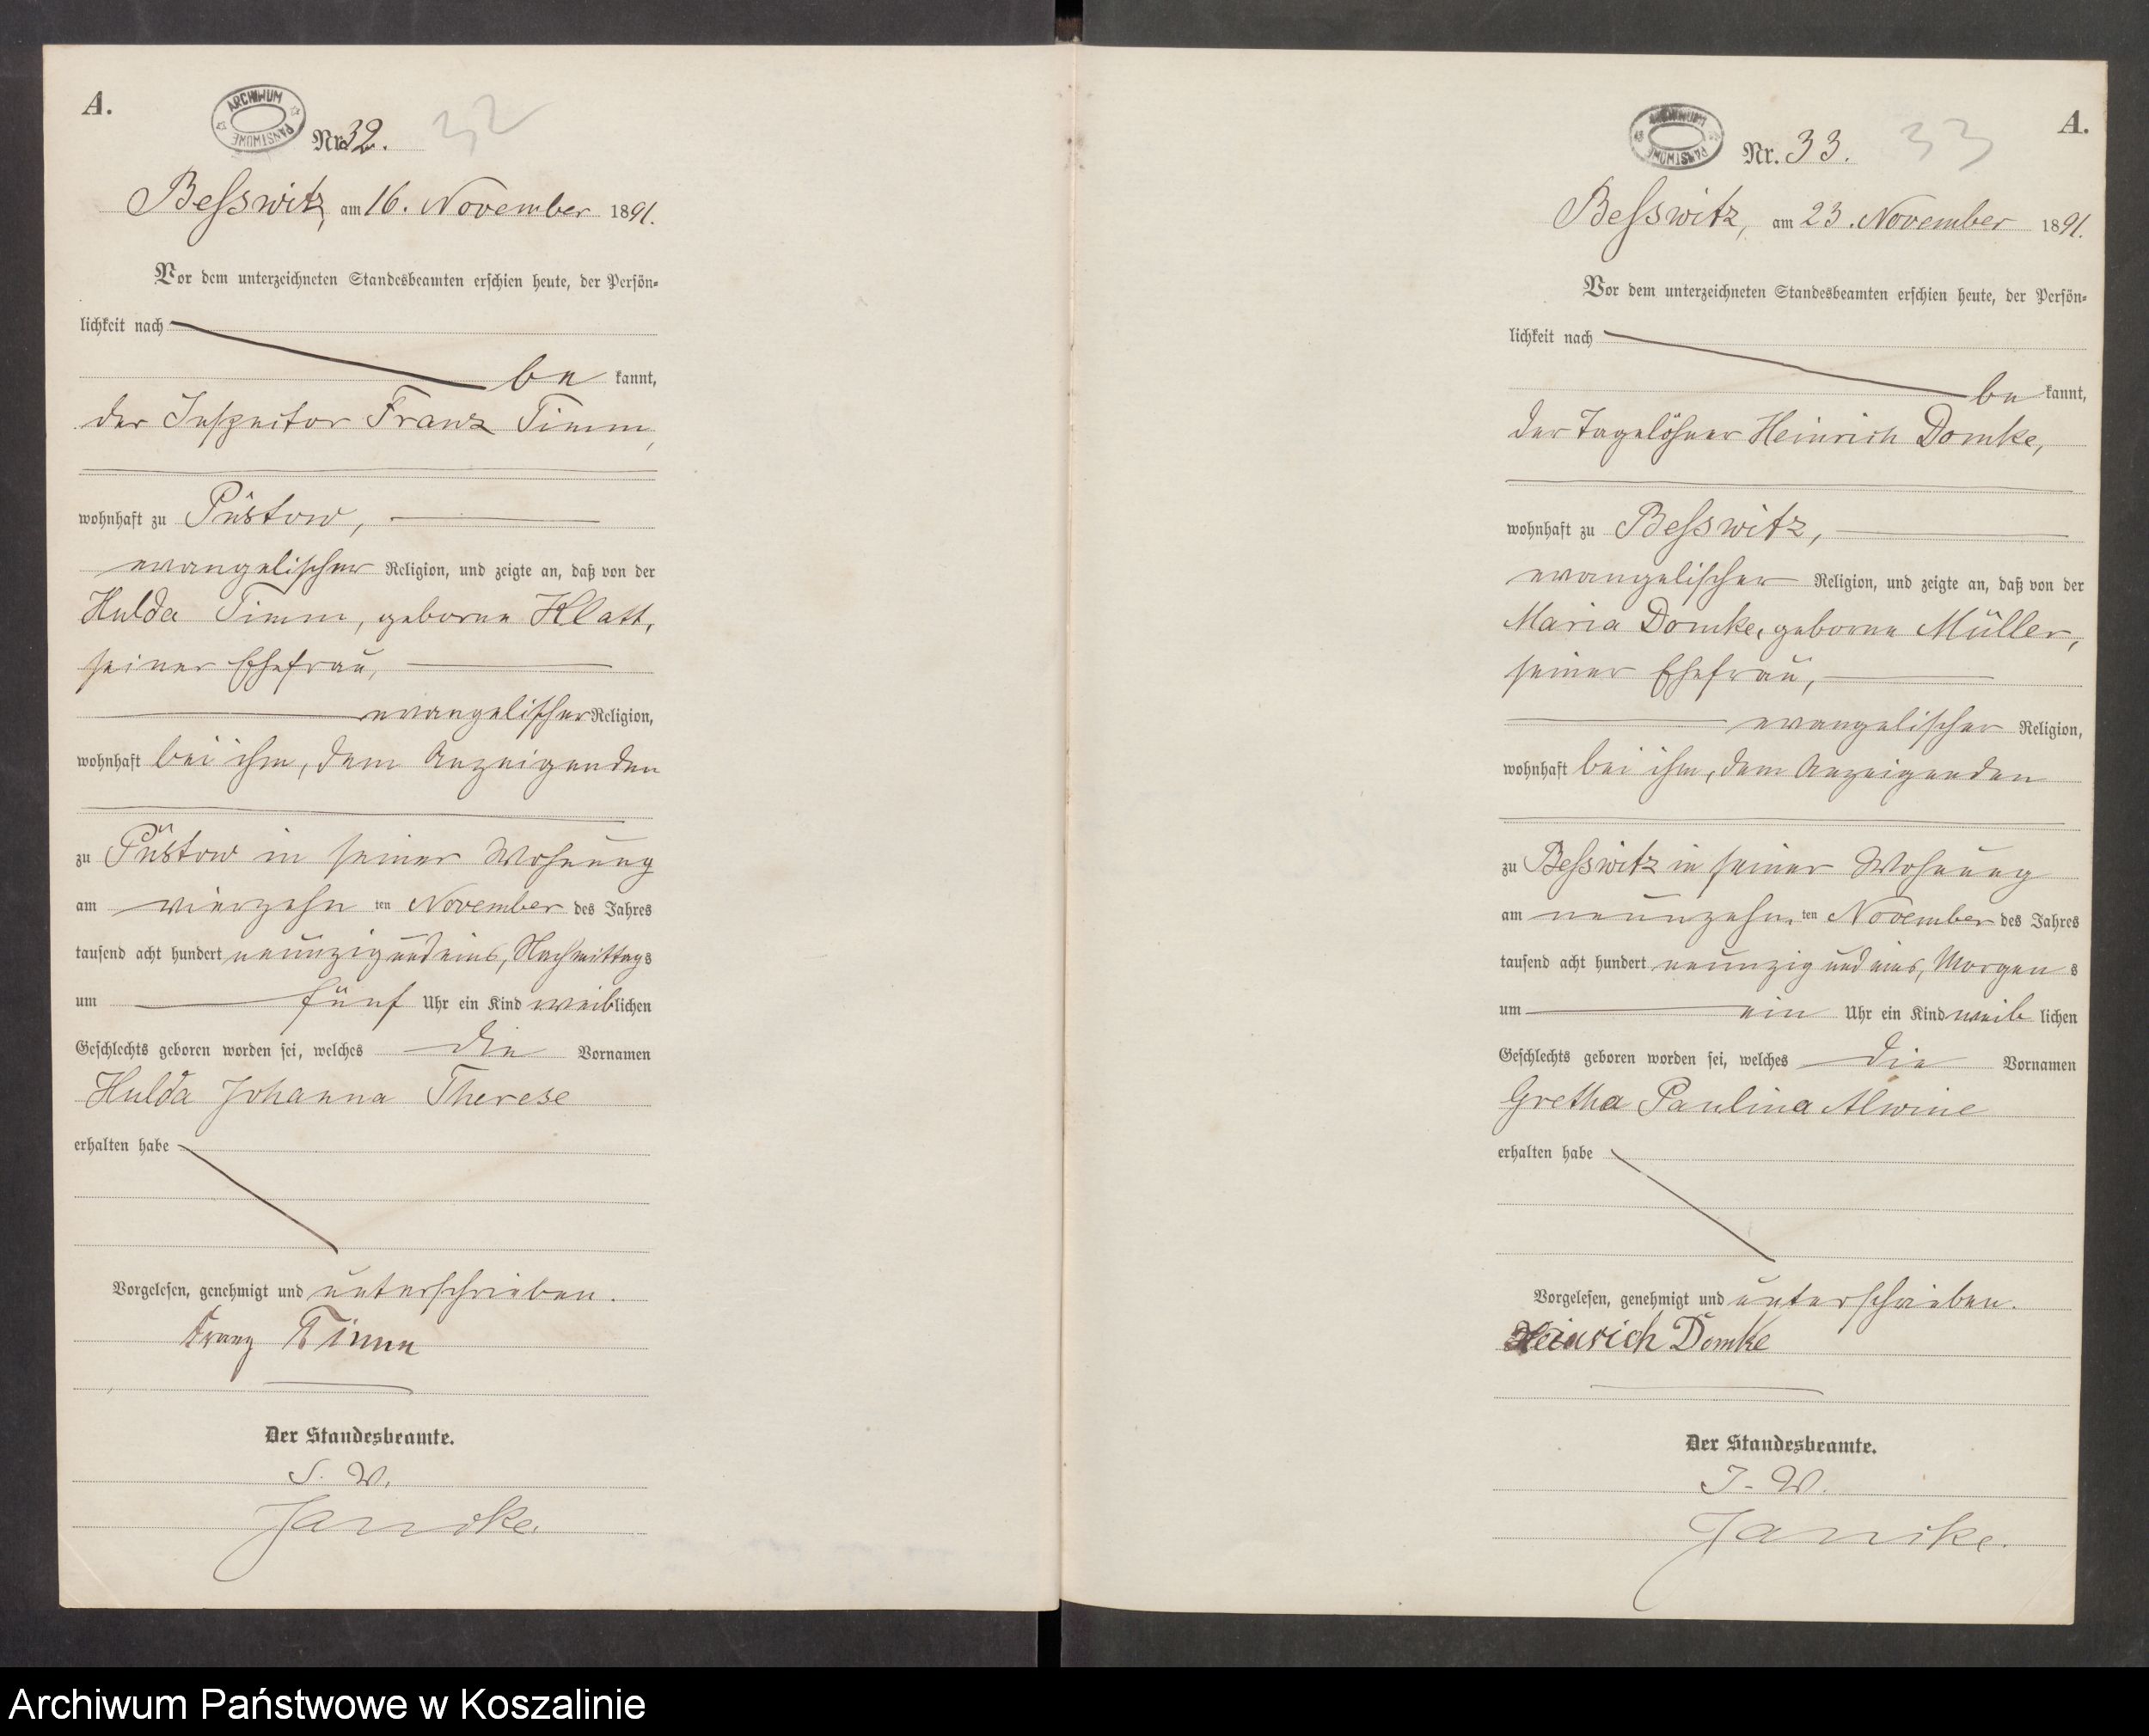 A.
ARCHIWUM PAŃSTWOWE
Nr. 32. 32
Besswitz, am 16. November 1891.
Vor dem unterzeichneten Standesbeamten erschien heute, der Persön-
lichkeit nach
be kannt,
der Inspector Franz Timm,
wohnhaft zu Püstow,
evangelischer Religion, und zeigte an, daß von der
Hulda Timm, geborne Klatt,
seiner Ehefrau,
evangelischer Religion,
wohnhaft bei ihm, dem Anzeigenden
zu Püstow in seiner Wohnung
am vierzehn ten November des Jahres
tausend acht hundert neunzig und eins, Nachmittags
um fünf Uhr ein Kind weiblichen
Geschlechts geboren worden sei, welches die Vornamen
Hulda Johanna Therese
erhalten habe
Vorgelesen, genehmigt und unterschrieben.
Franz Timm
Der Standesbeamte.
J. V.
Jancke.
A.
ARCHIWUM PAŃSTWOWE
Nr. 33. 33
Besswitz, am 23. November 1891.
Vor dem unterzeichneten Standesbeamten erschien heute, der Persön-
lichkeit nach
be kannt,
der Tagelöhner Heinrich Domke,
wohnhaft zu Besswitz,
evangelischer Religion, und zeigte an, daß von der
Maria Domke, geborne Müller,
seiner Ehefrau,
evangelischer Religion,
wohnhaft bei ihm, dem Anzeigenden
zu Besswitz in seiner Wohnung
am neunzehn ten November des Jahres
tausend acht hundert neunzig und eins, Morgens
um ein Uhr ein Kind weib lichen
Geschlechts geboren worden sei, welches die Vornamen
Gretha Paulina Alwine
erhalten habe
Vorgelesen, genehmigt und unterschrieben.
Heinrich Domke
Der Standesbeamte.
J. V.
Jancke.
Archiwum Państwowe w Koszalinie